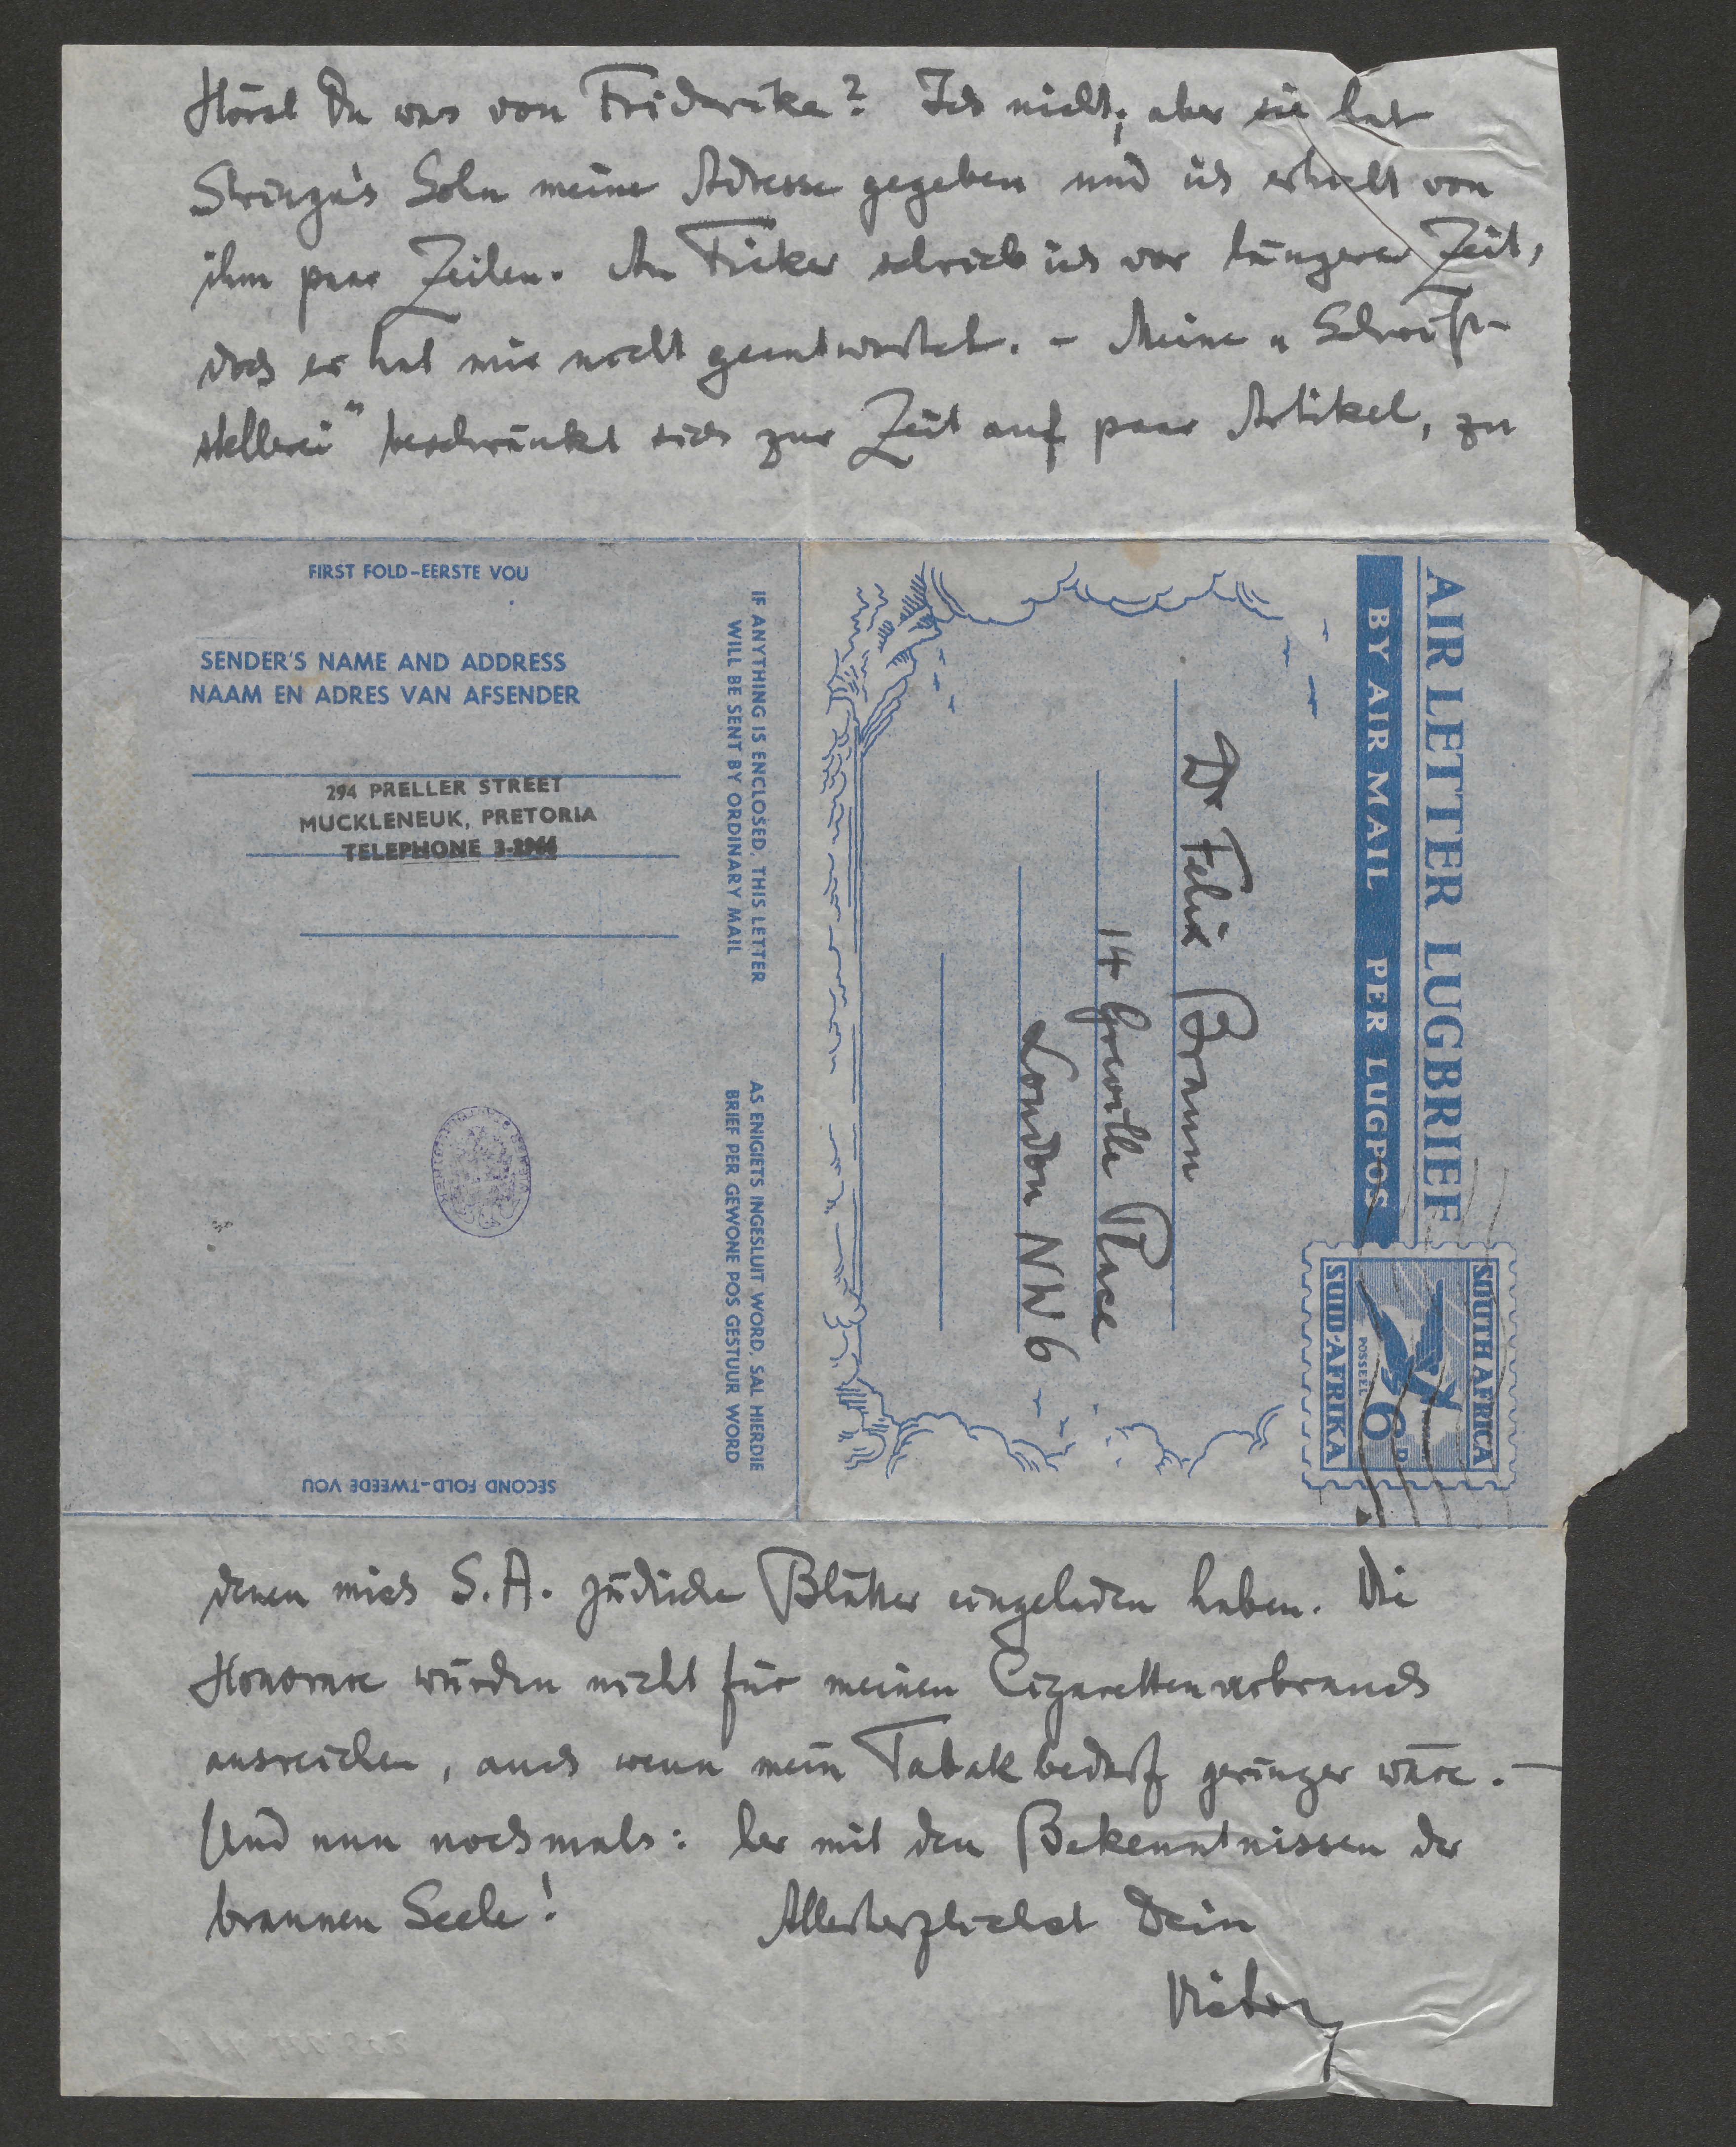 Hörst Du was von Friderike? Ich nicht; aber sie hat
Sohn meine Adresse gegeben und ich erhielt von
ihm paar Zeilen. An Ficker schrieb ich vor längerer Zeit,
doch er hat mir nicht geantwortet. – Meine „Schrift-
stellerei“ beschränkt sich zur Zeit auf paar Artikel, zu
FIRST FOLD–EERSTE VOU
SENDER'S NAME AND ADDRESS
NAAM EN ADRES VAN AFSENDER
294 PRELLER STREET
MUCKLENEUK, PRETORIA
TELEPHONE
IF ANYTHING IS ENCLOSED, THIS LETTER
WILL BE SENT BY ORDINARY MAIL
AS ENIGIETS INGESLUIT WORD, SAL HIERDIE
BRIEF PER GEWONE POS GESTUUR WORD
SECOND FOLD–TWEEDE VOU
AIR LETTER LUGBRIEF
BY AIR MAIL PER LUGPOS
SOUTH AFRICA
POSSEEL 6D
SUID-AFRIKA
Dr Felix Braun
14 Greville Place
London NW6
denen mich S.A. jüdische Blätter eingeladen haben. Die
Honorare würden nicht für meinen Cigarettenverbrauch
ausreichen, auch wenn mein Tabakbedarf geringer wäre. –
Und nun nochmals: her mit den Bekenntnissen der
braunen Seele! Allerherzlichst Dein
Victor